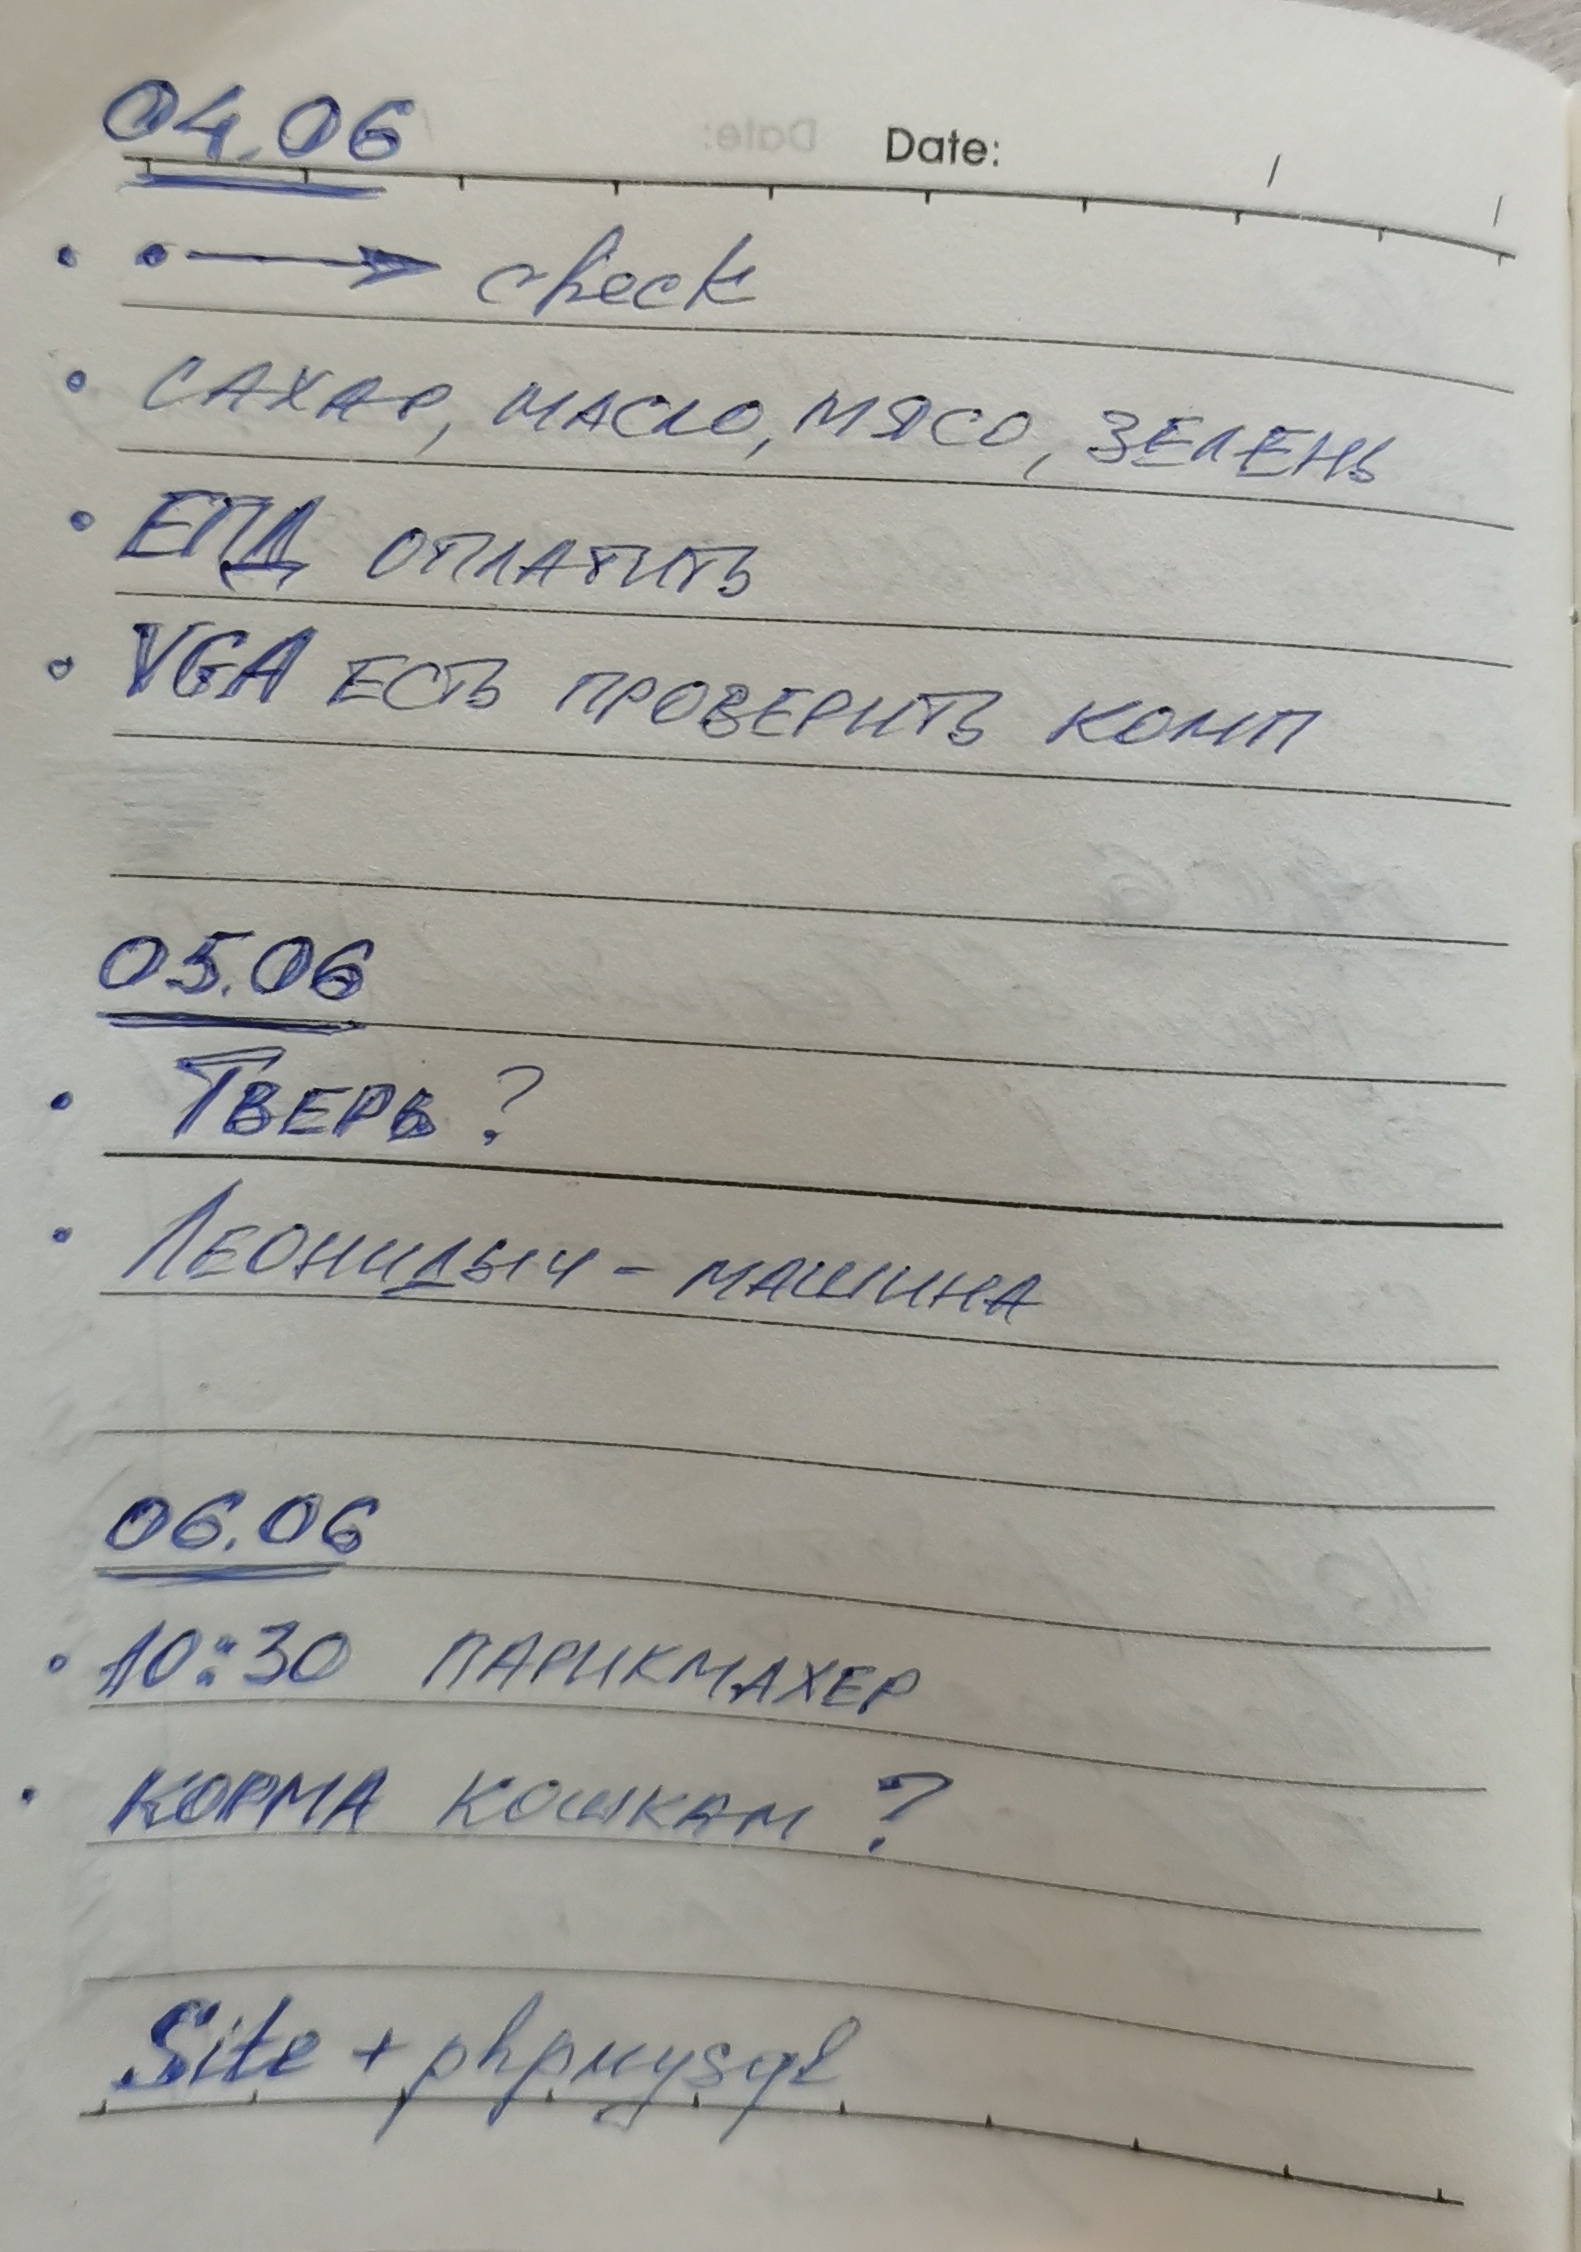 04.06
Date: / /
• • → check
• САХАР, МАСЛО, МЯСО, ЗЕЛЕНЬ
• ЕПД ОПЛАТИТЬ
• VGA ЕСТЬ ПРОВЕРИТЬ КОМП
05.06
• ТВЕРЬ?
• ЛЕОНИДЫЧ - МАШИНА
06.06
• 10:30 ПАРИКМАХЕР
• КОРМА КОШКАМ?
Site + phpmysql